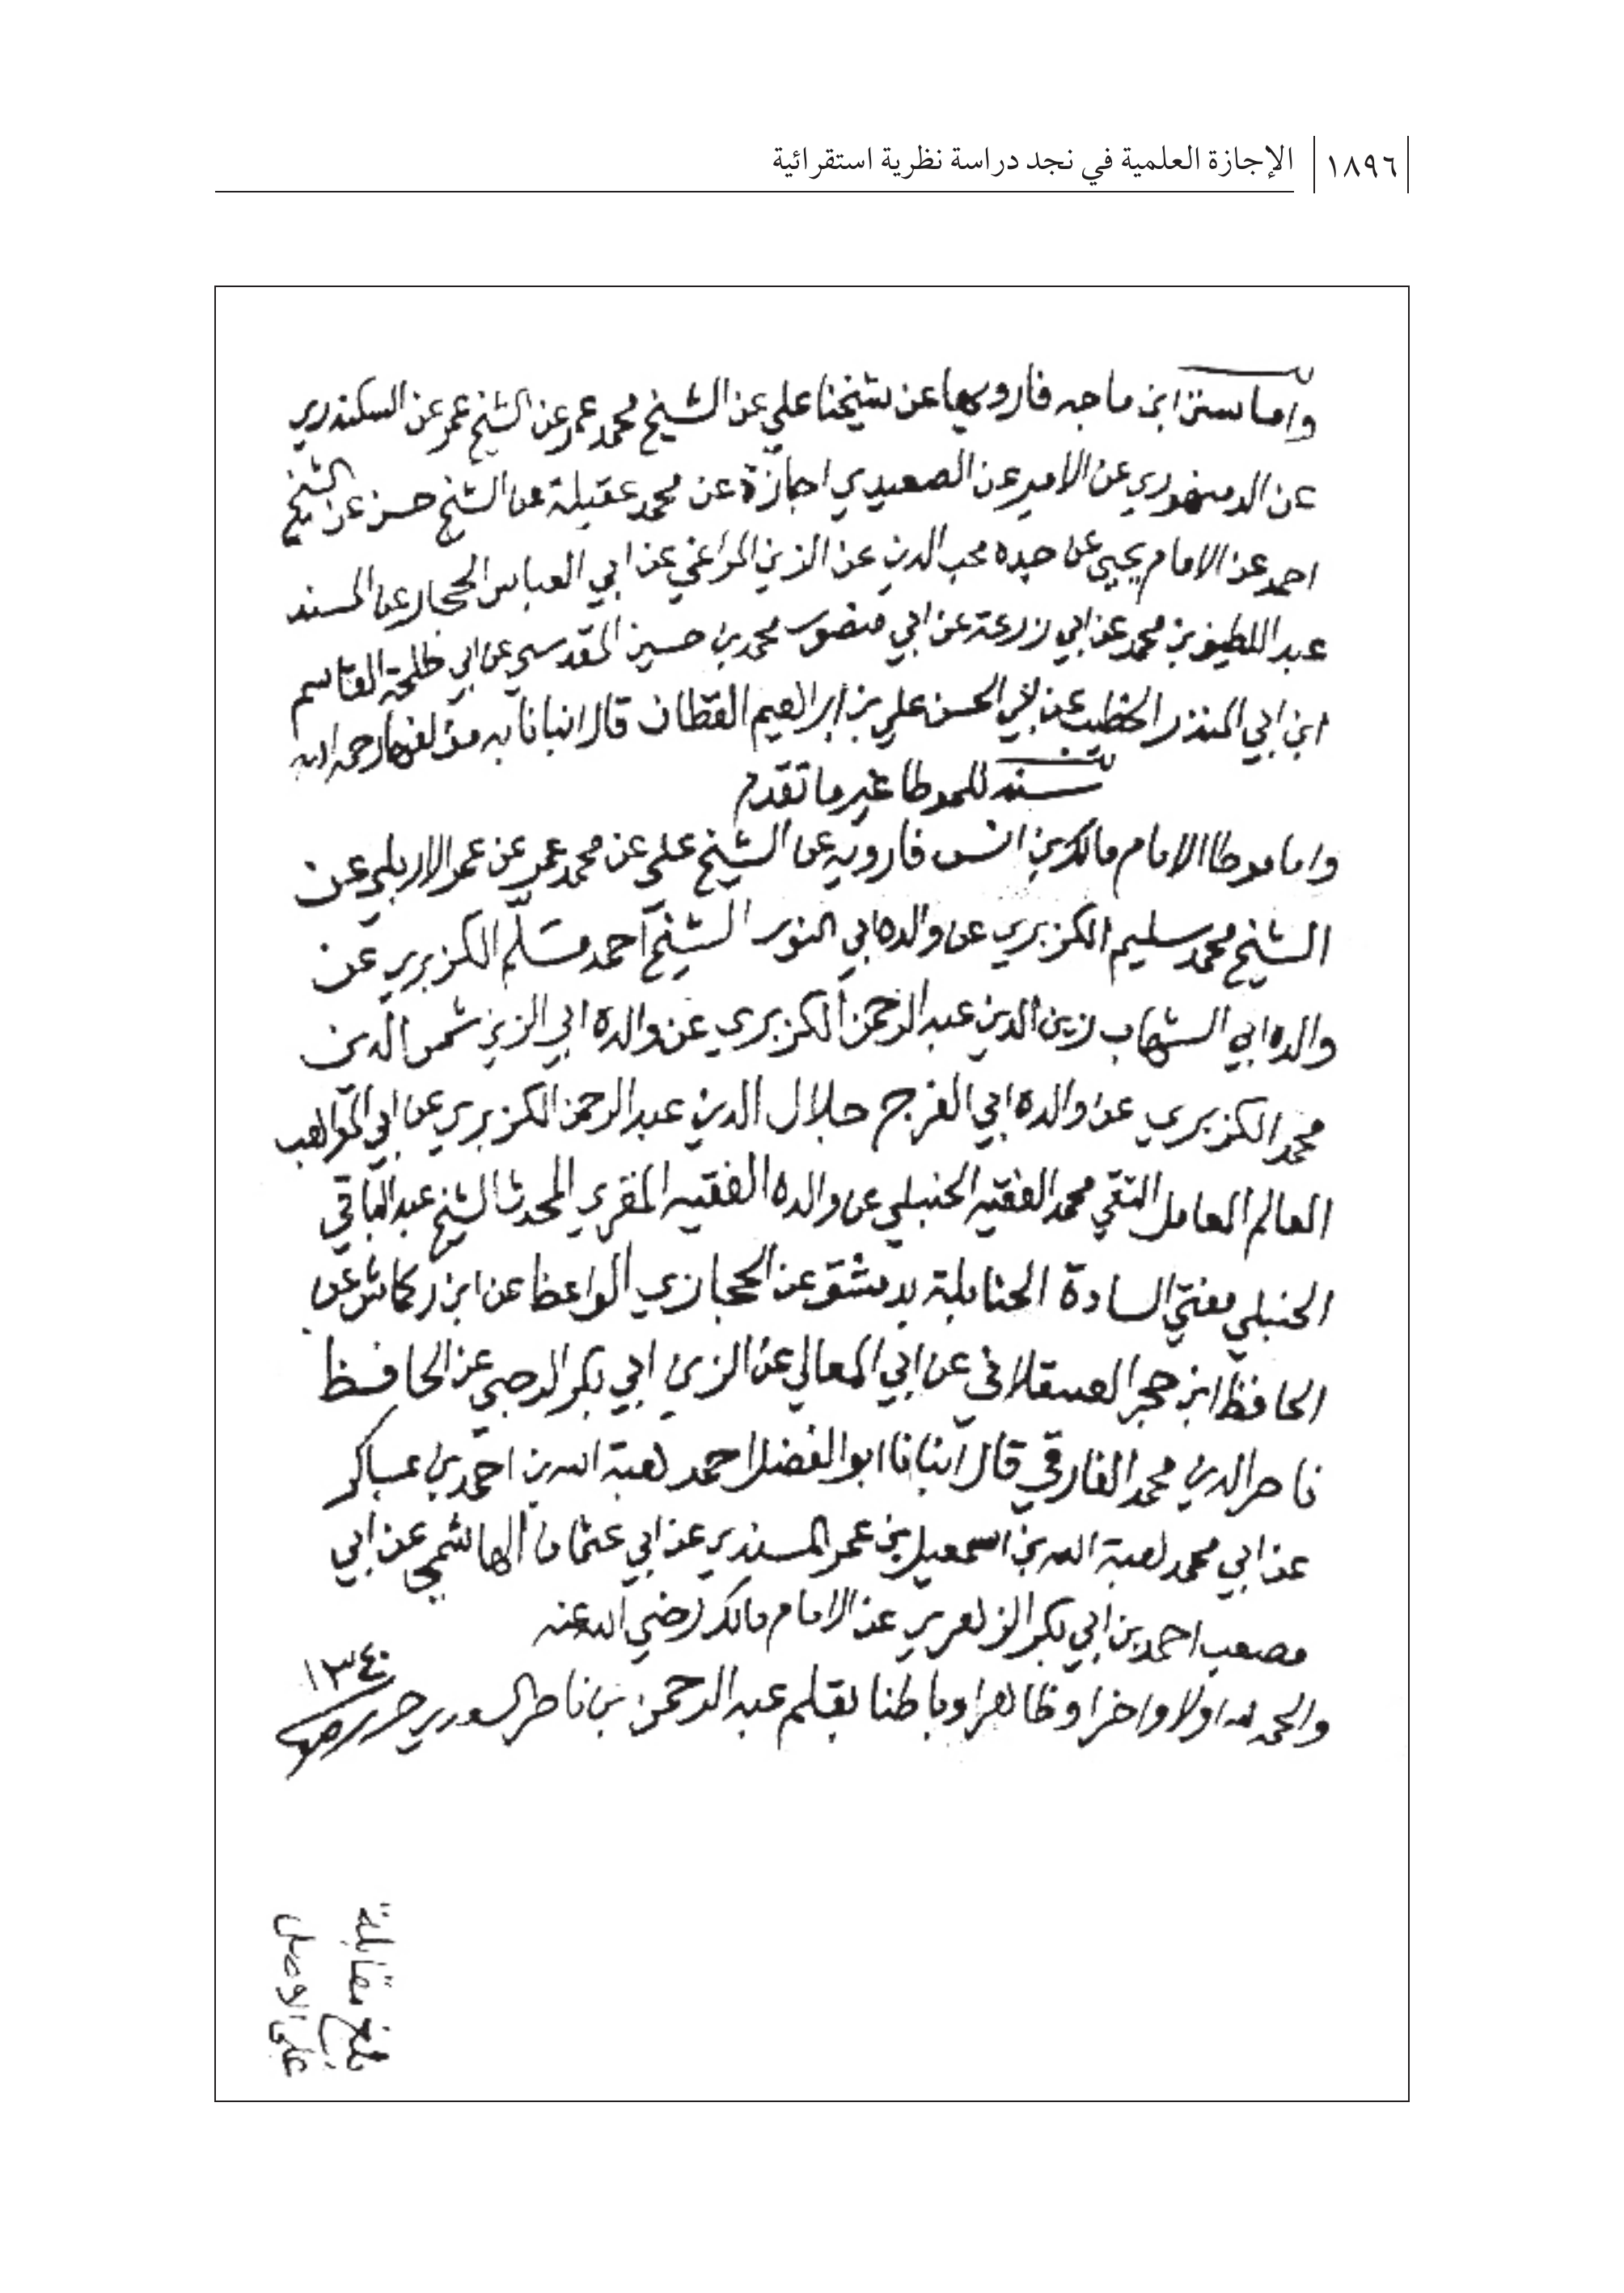 ١٨٩٦ الإجازة العلمية في نجد دراسة نظرية استقرائية
واما سنن ابن ماجه فارويها عن شيخنا علي عن الشيخ محمد عمر عن الشيخ عمر عن السكندري
عن الدمنهوري عن الامير عن الصعيدي اجازة عن محمد عقيلة عن الشيخ حسن عن الشيخ
احمد عن الامام يحيى عن جده محب الدين عن الزين المراغي عن ابي العباس الحجار عن المسند
عبد اللطيف بن محمد عن ابي زرعة عن ابي منصور محمد بن حسين المقدسي عن ابي طلحة القاسم
ابن ابي المنذر الخطيب عن ابي الحسن علي بن ابراهيم القطان قال انبانا به مؤلفها رحمه الله
سند للموطا غير ما تقدم
واما موطا الامام مالك بن انس فارويه عن الشيخ علي عن محمد عمر عن عمر الاربلي عن
الشيخ محمد سليم الكزبري عن والده ابي النور الشيخ احمد مسلّم الكزبري عن
والده ابي الشهاب زين الدين عبد الرحمن الكزبري عن والده ابي الزين شمس الدين
محمد الكزبري عن والده ابي الفرج جلال الدين عبد الرحمن الكزبري عن ابي المواهب
العالم العامل التقي محمد الفقيه الحنبلي عن والده الفقيه المقري المحدث الشيخ عبد الباقي
الحنبلي مفتي السادة الحنابلة بدمشق عن الحجازي الواعظ عن ابن اركماش عن
الحافظ ابن حجر العسقلاني عن ابي المعالي عن الزي ابي بكر الرحبي عن الحافظ
ناصر الدين محمد الفارقي قال انبانا ابو الفضل احمد هبة الله بن احمد بن عساكر
عن ابي محمد هبة الله بن اسمعيل بن عمر المسندي عن ابي عثمان الهاشمي عن ابي
مصعب احمد بن ابي بكر الزهري عن الامام مالك رضي الله عنه
والحمد لله اولا واخرا وظاهرا وباطنا بقلم عبد الرحمن بن ناصر السعدي حرر في ١٣٤٠
بلغ مقابلة
على الاصل